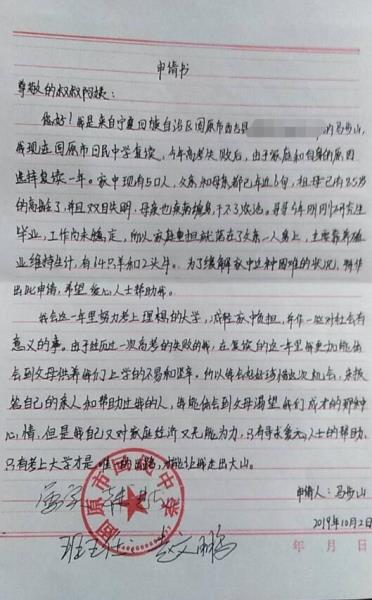 申请书
尊敬的叔叔阿姨：
您好！我是来自宁夏回族自治区固原市西吉县 的马步山，
我现在固原市回民中学复读，今年高考失败后，由于家庭和自身的原因
选择复读一年。家中现有5口人，父亲和母亲都已年近6旬，祖母已有85岁
的高龄了，并且双目失明，母亲也疾病缠身，干不了农活。哥哥今年刚刚研究生
毕业，工作尚未稳定，所以家庭重担就落在了父亲一人身上，主要靠养殖
业维持生计，有14只羊和2头牛。为了缓解家中这种困难的状况，特作
出此申请，希望爱心人士帮助我。
我会在一年里努力考上理想的大学，减轻家中负担，并作一些对社会有
意义的事。由于经历过一次高考的失败的我，在复读的这一年里我更加能体
会到父母供养我们上学的不易和艰辛，所以我会好好珍惜这次机会，来报
答自己的亲人和帮助过我的人，我能体会到父母渴望我们成才的那种
心情，但是我自己又对家庭经济又无能为力，只有寻求爱心人士的帮助，
只有考上大学才是唯一的出路，才能让我走出大山。
申请人：马步山
2019年10月2日
属实
固原市回民中学
班主任：赵文鹏
年 月 日